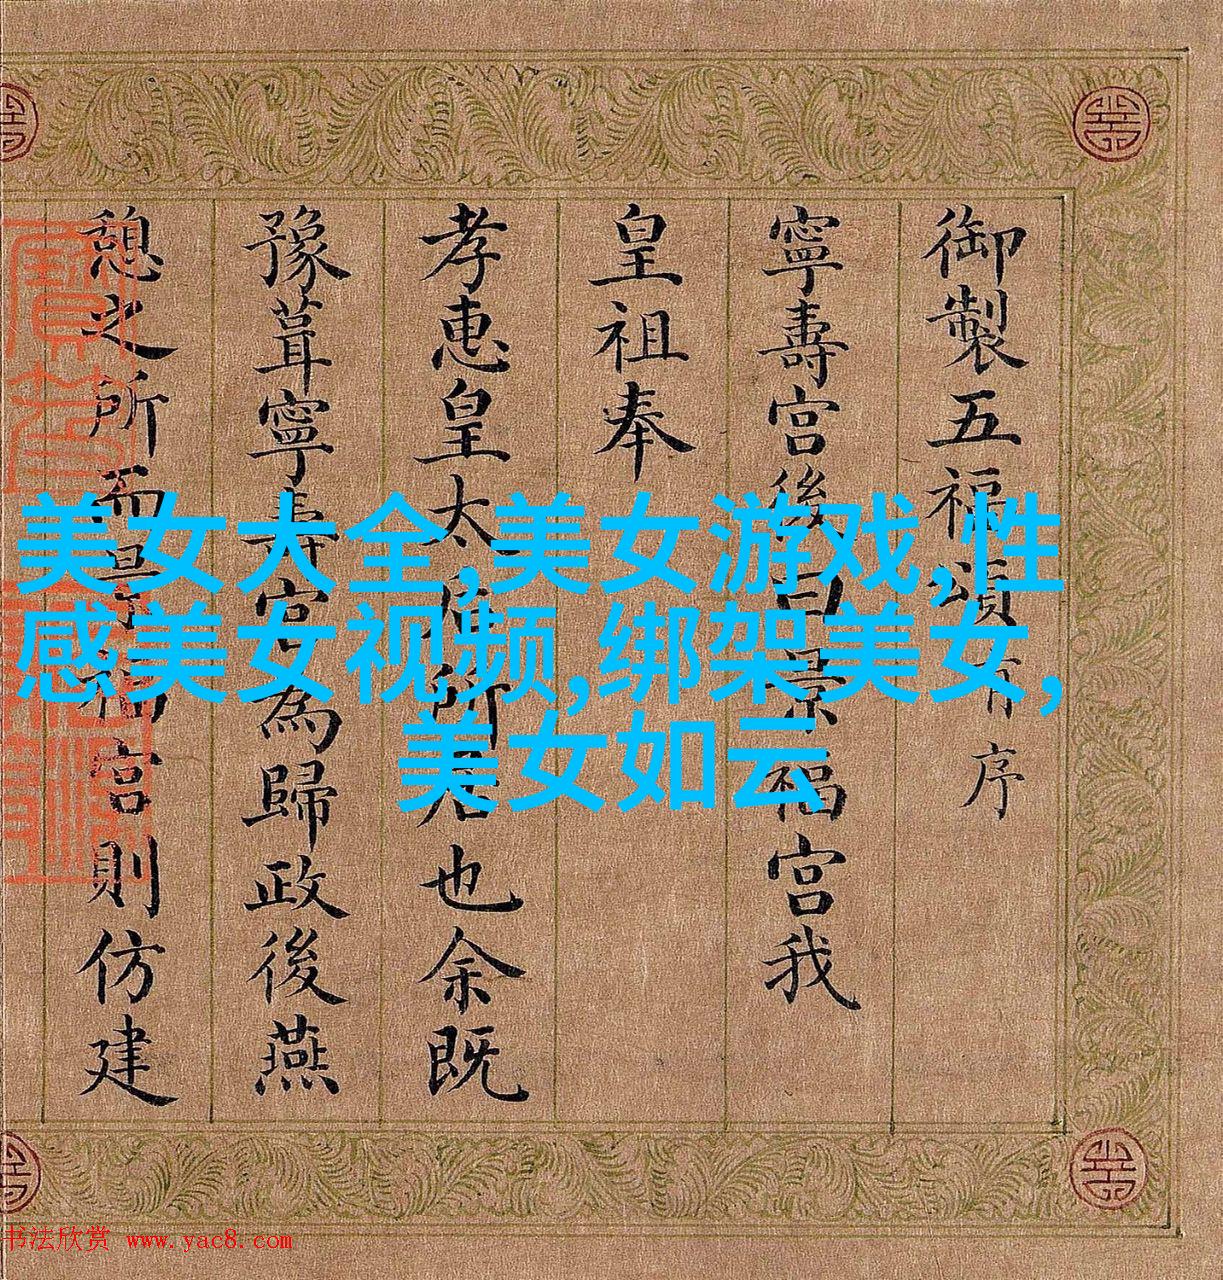 御製五福頌有序
寧壽宮後曰景福宮我
皇祖奉
孝惠皇太后所居也余既
豫葺寧壽宮為歸政後燕
憩之所而景福宮則仿建
美女大全,美女游戏,性
感美女视频,绑架美女,
美女如云
书法欣赏 www.yac8.com